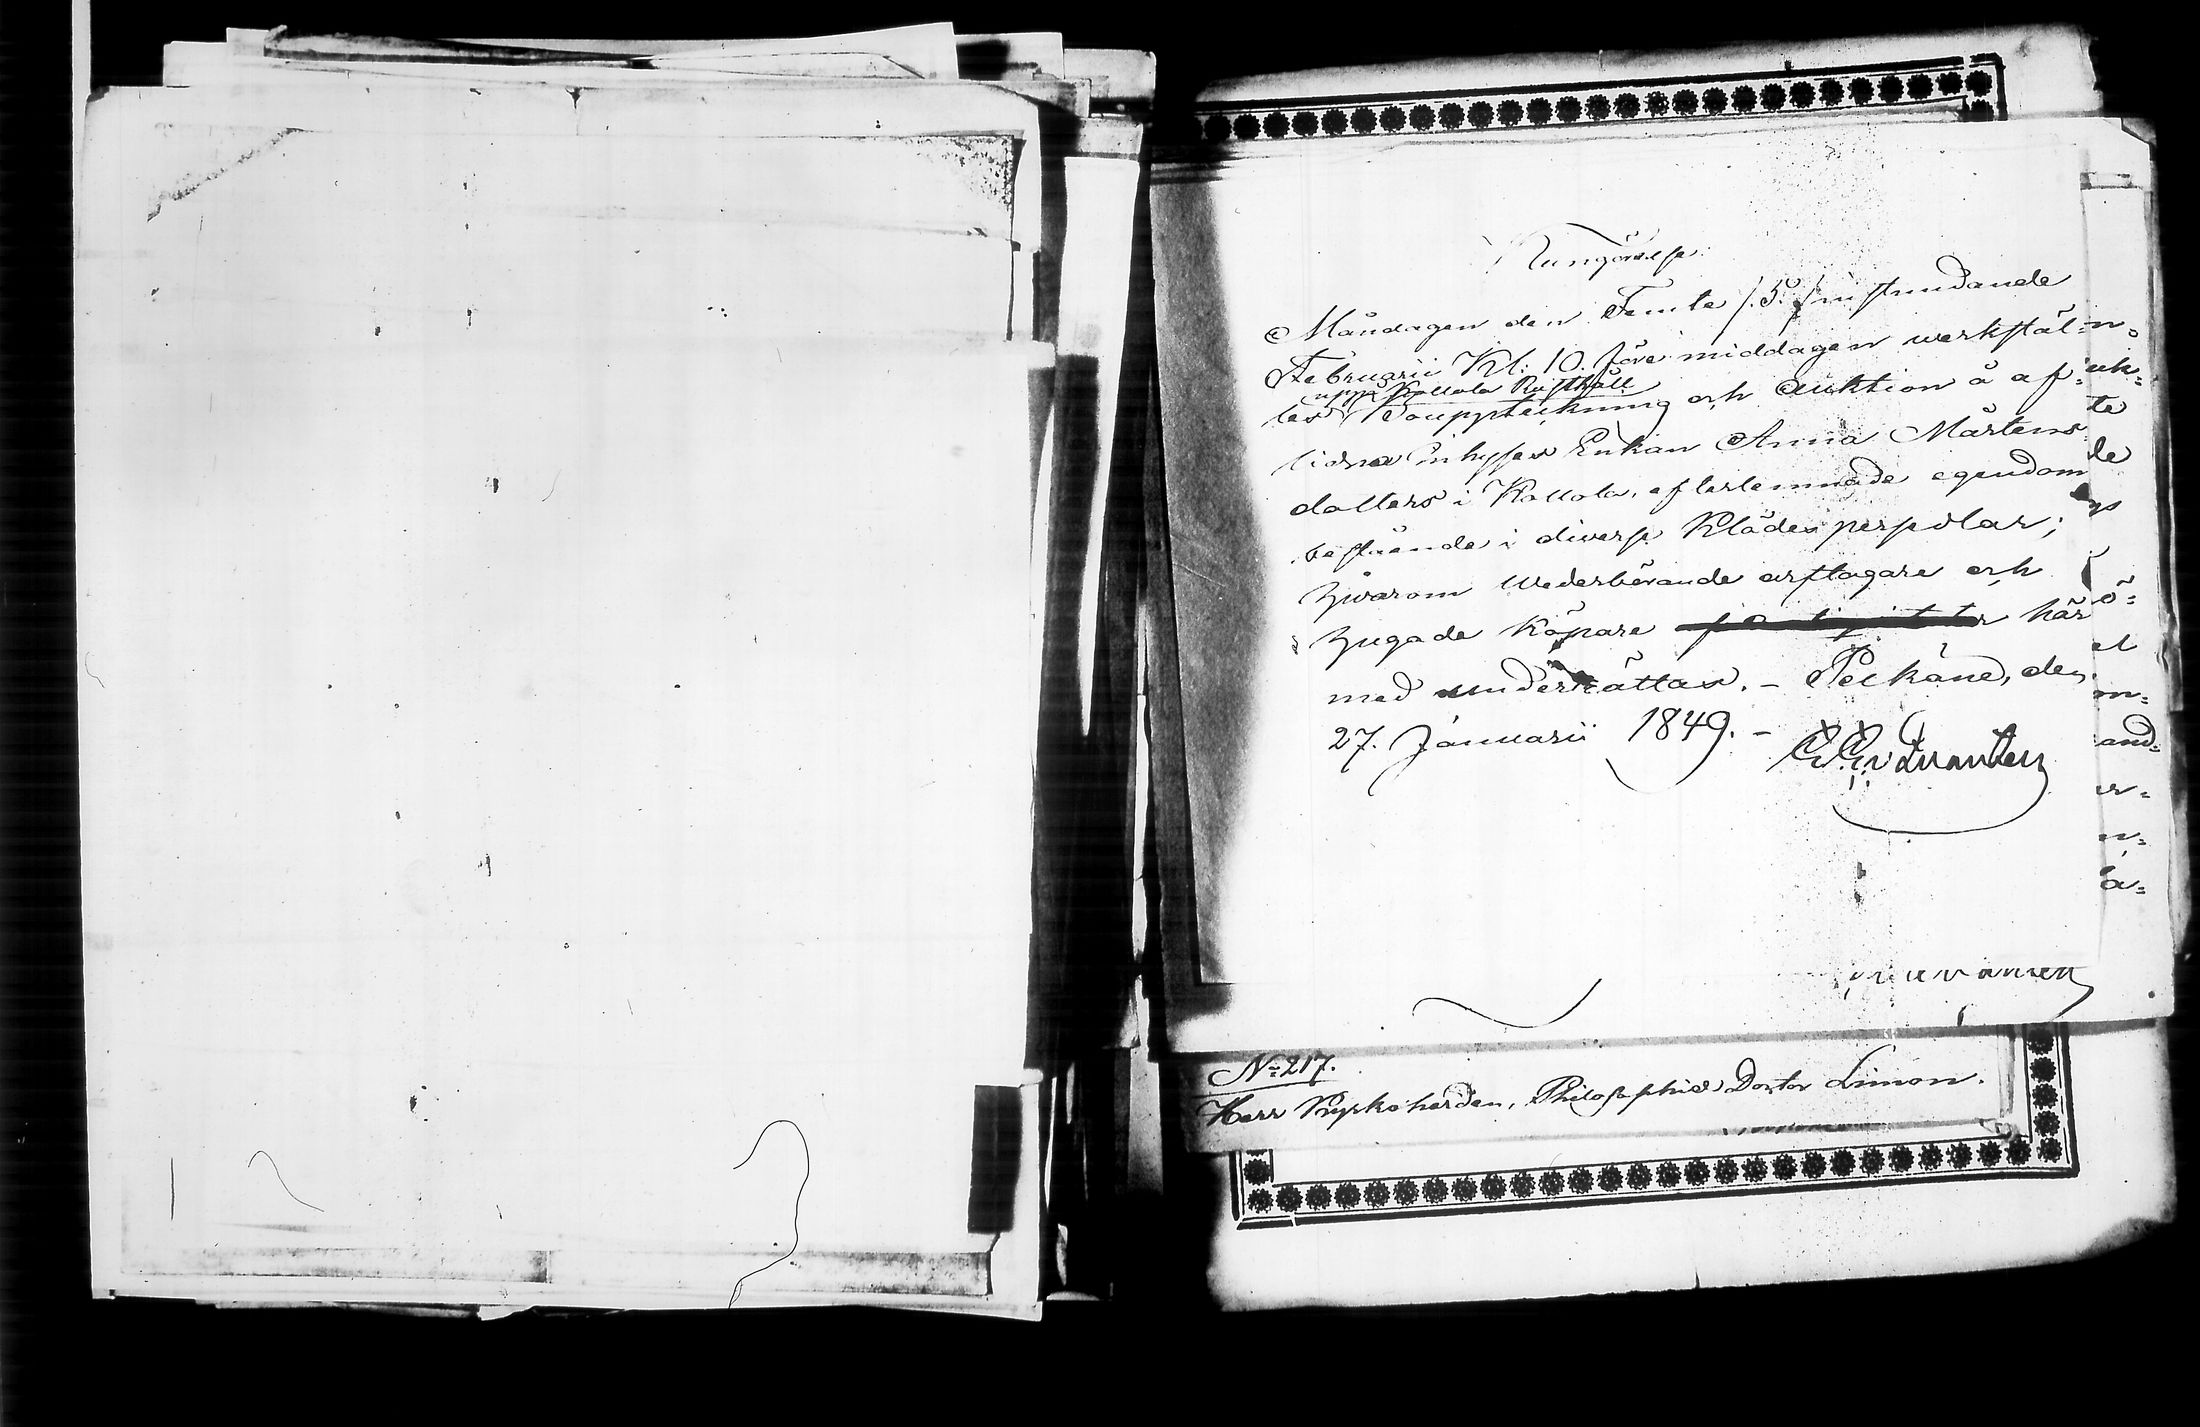 Kungörelse.
Måndagen den Femte /5./ instundande
Februarii Kl: 10. före middagen werkstäl-
upp Kollola Rusthåll
les Boupptekning och Auktion å af-
lidna Inhyses Enkan Anna Mårtens
dotters i Kollola, efterlemnade egendom
bestående i diverse Klädes persedlar;
hwarom wederbörande arftagare och
hugade Köpare här
med underrättas. - Pelkäne, den
27. Januarii 1849. -
n-
uk-
te
de
ö-
et
m-
and-
er-
n-
a-
No 217.
Herr Kyrkoherden, Philosophie Doctor Limon.